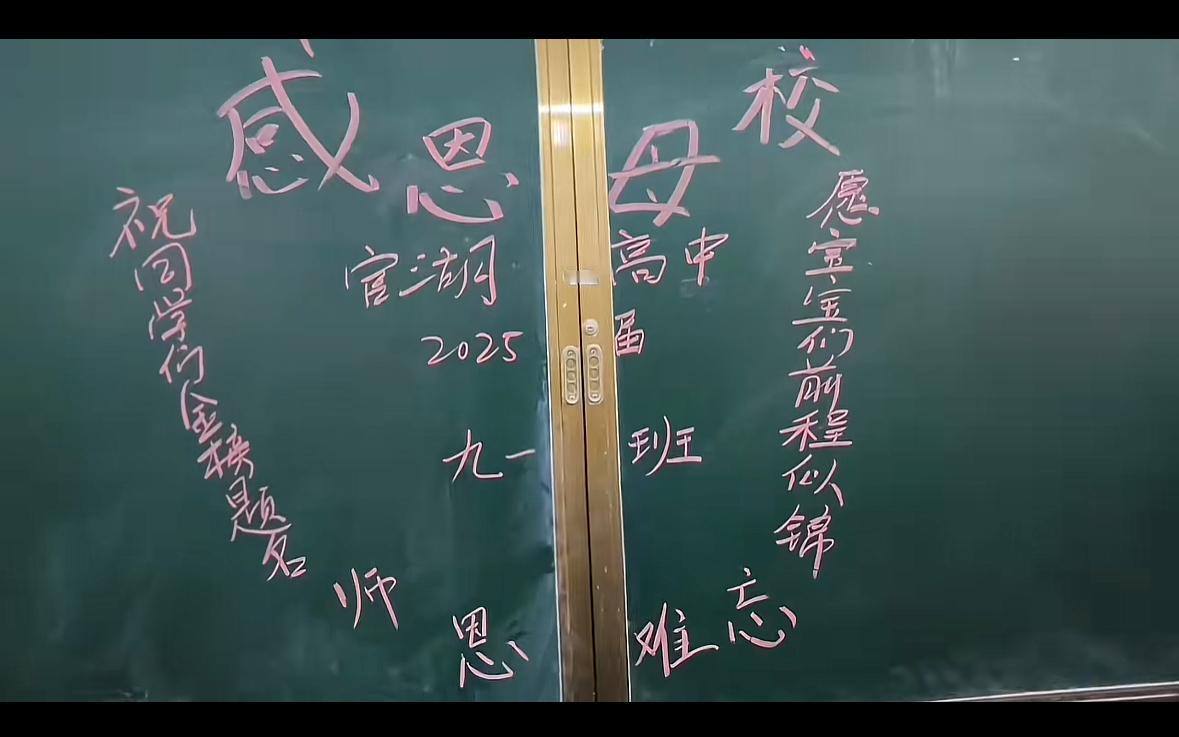 感恩母校
祝同学们金榜题名
官湖高中
2025届
九一班
愿宝宝们前程似锦
师恩难忘